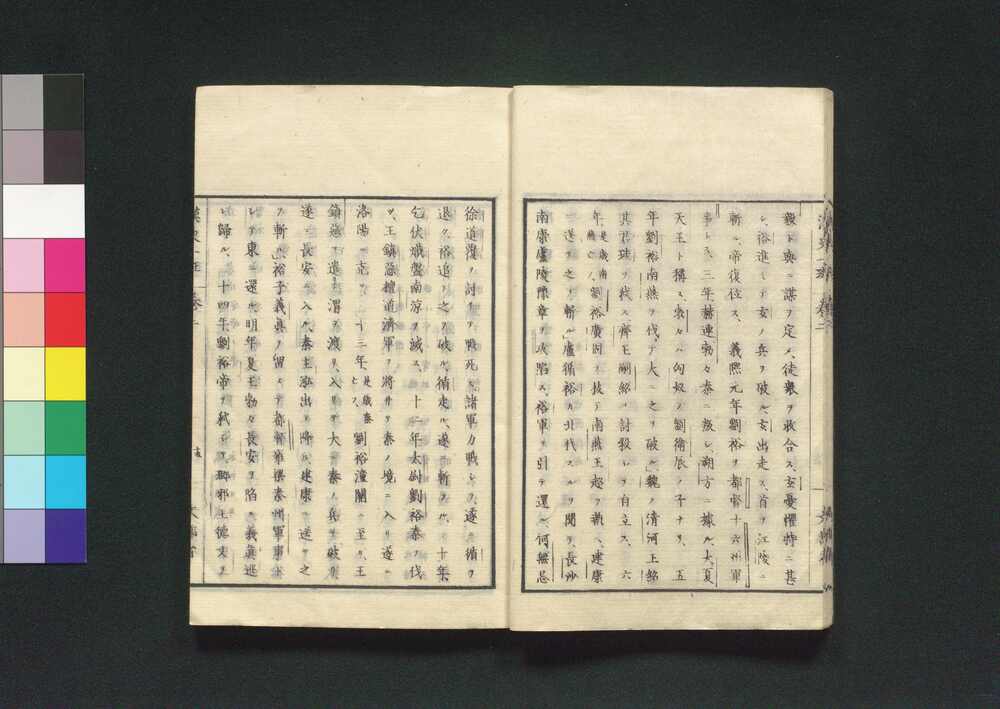 毅ト與ニ謀ヲ定メ、徒衆ヲ收合ス、玄憂懼特ニ甚
シ、裕進ミテ玄ノ兵ヲ破ル、玄出走ス、首ヲ江陵ニ
斬ル、帝復位ス、義熙元年劉裕ヲ都督十六州軍
事トス、三年赫連勃々秦ニ叛シ朔方ニ據ル、大夏
天王ト稱ス、勃々ハ匈奴ノ劉衛辰ノ子ナリ、五
年劉裕南燕ヲ伐テ大ニ之ヲ破ル、魏ノ清河王紹
其君珪ヲ弑ス、齊王嗣紹ヲ討殺シテ自立ス、六
年、是歳南燕亡フ、劉裕廣固ヲ拔テ南燕王超ヲ執ヘ、建康
ニ送テ之ヲ斬ル、盧循裕カ北伐スルヲ聞テ長沙
南康盧陵豫章ヲ攻陷ス、裕軍ヲ引テ還ル、何無忌
徐道覆ヲ討テ戰死ス、諸軍力戰シテ、遂ニ循ヲ
退ク、裕追テ之ヲ破ル、循走ル、遂ニ斬ラル、十年
乞伏熾盤南涼ヲ滅ス、十二年太尉劉裕秦ヲ伐
ツ、王鎮惡檀道濟軍ヲ將サヰテ秦ノ境ニ入リ遂ニ
洛陽ニ克ツ、十三年、是歳秦亡フ、劉裕潼關ニ至リ、王
鎮惡ヲ遣シ渭ヲ渡リ、入リテ大ニ秦ノ兵ヲ破リ
遂ニ長安ニ入ル、秦主泓出テ降ル、建康ニ送テ之
ヲ斬ル、裕子義眞ヲ留メテ都督雍梁秦州軍事ト
シテ東ニ還ル、明年夏王勃々長安ヲ陷ル、義眞逃
レ歸ル、十四年劉裕帝ヲ弑シテ、琅邪王德文ヲ